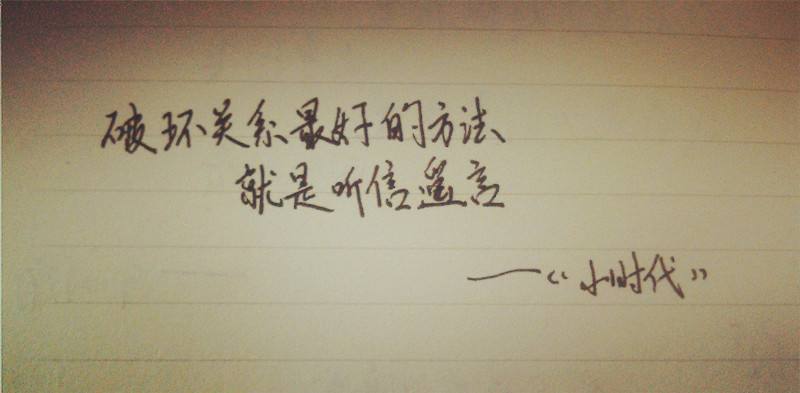 破环关系最好的方法、
就是听信遥言
——《小时代》